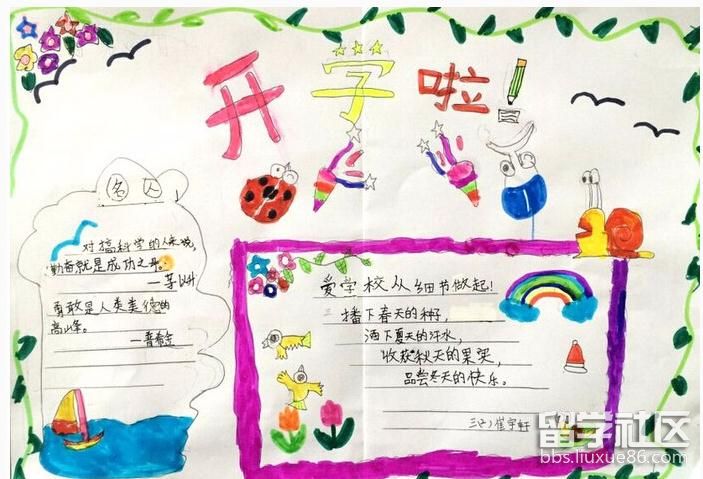 开字啦!
名人
对搞科学的人来说,
勤奋就是成功之母。
一茅以升
勇敢是人类美德的
高山峰。
一普希金
爱学校从细节做起!
播下春天的种子,
洒下夏天的汗水,
收获秋天的果实,
品尝冬天的快乐。
三(2)崔宇轩
留学社区
bbs.liuxue86.com